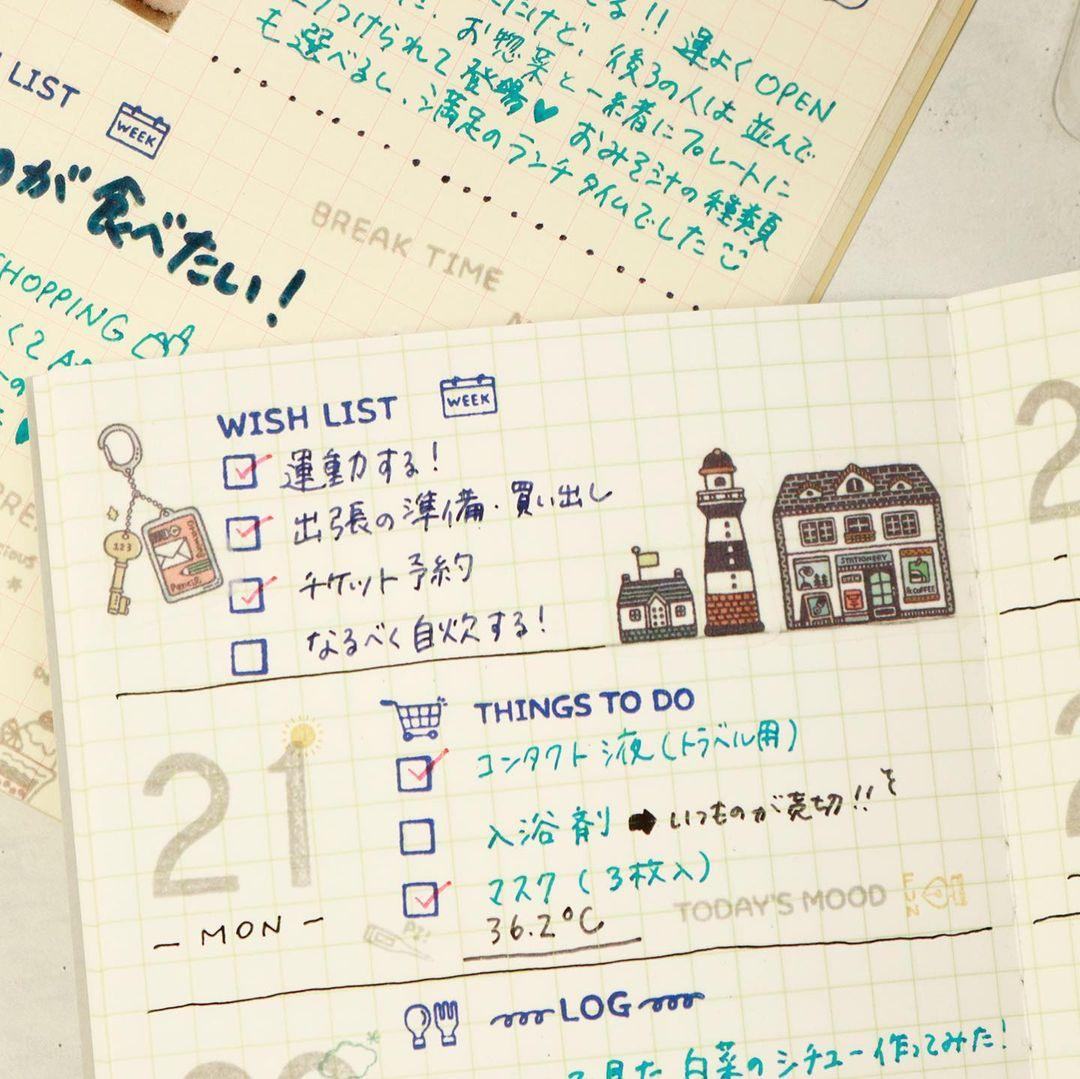 る!! 運よくOPEN
だけど、後ろの人は並んで
つけられて登場♥ お惣菜と一緒にプレートに
も選べるし、満足のランチタイムでした
おみそ汁の種類
LIST
WEEK
が食べたい!
BREAK TIME
SHOPPING
WISH LIST
WEEK
運動する!
出張の準備・買い出し
チケット予約
なるべく自炊する!
123
STATIONERY
OPEN
COFFEE
THINGS TO DO
コンタクト液(トラベル用)
入浴剤 ➡ いつものが売切!!
マスク(3枚入)
36.2℃
21
- MON -
TODAY'S MOOD
FUN
LOG
白菜のシチュー作ってみた!